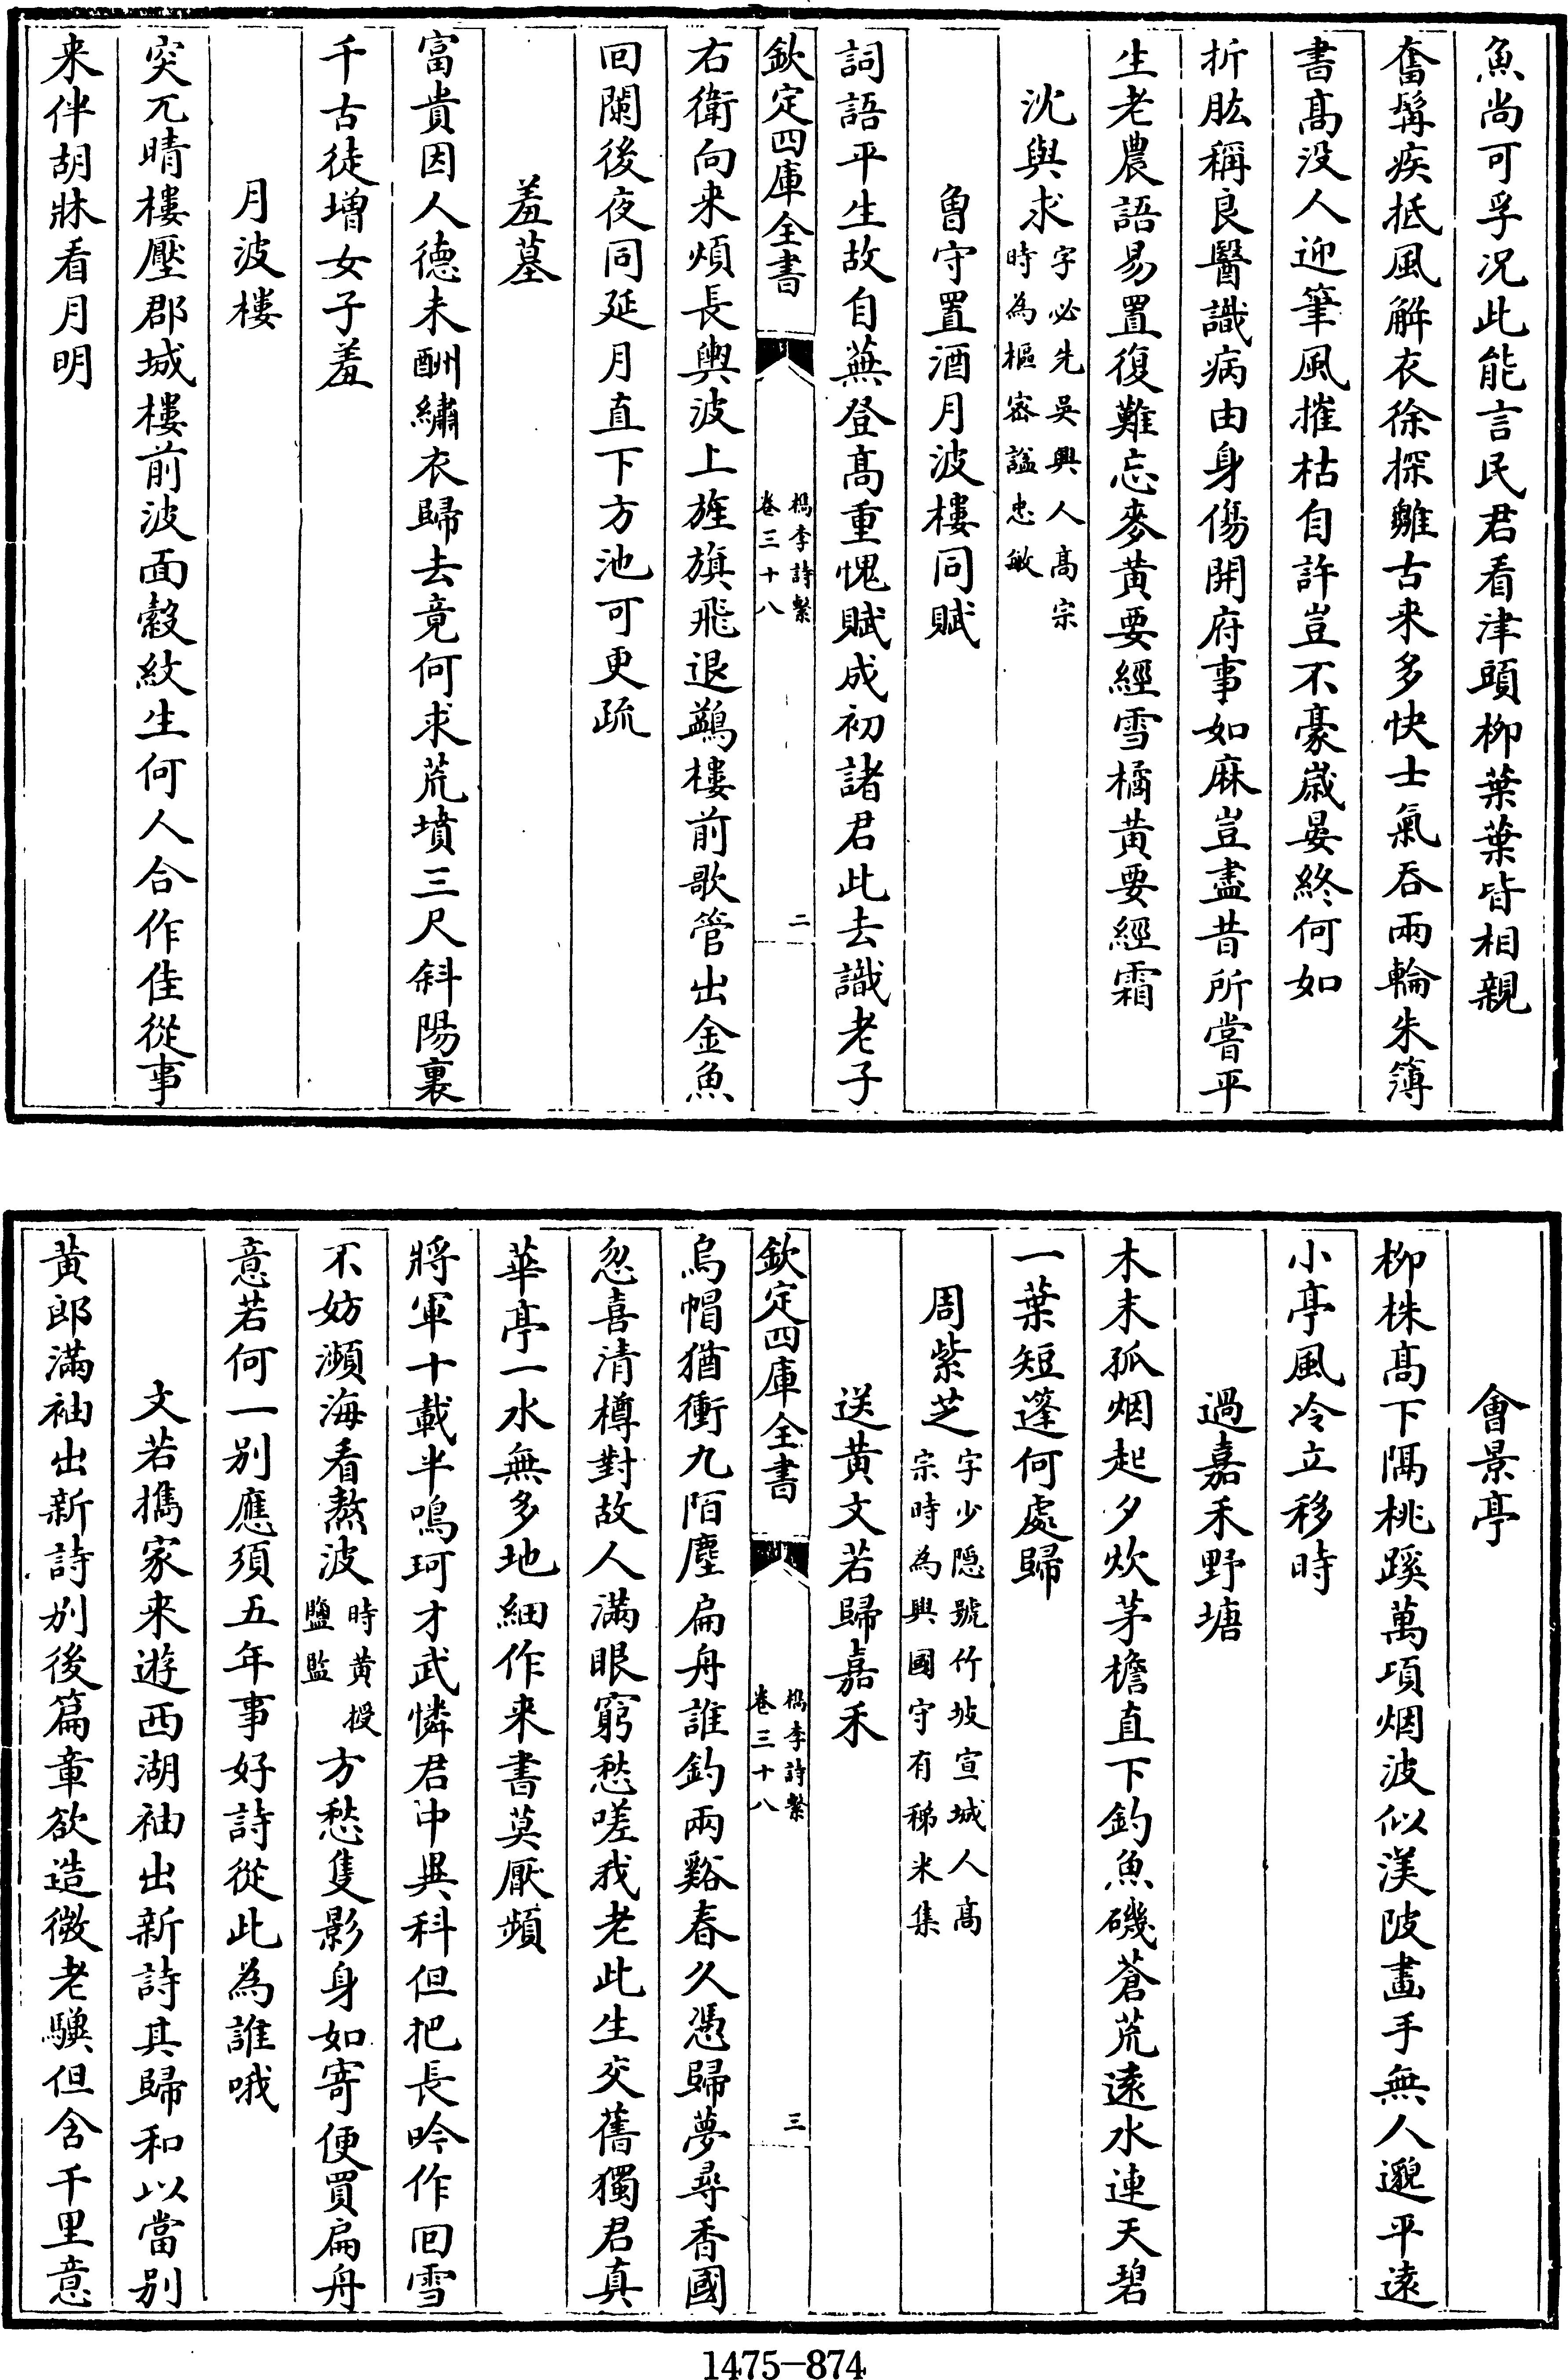 魚尚可孚况此能言民君看津頭柳葉葉皆相親
奮髯疾抵風解衣徐探雛古来多快士氣吞兩輪朱簿
書髙没人迎筆風摧枯自許豈不豪嵗晏終何如
折肱稱良醫識病由身傷開府事如麻豈盡昔所嘗平
生老農語易置復難忘麥黄要經雪橘黄要經霜
沈與求字必先吳興人髙宗時為樞密諡忠敏
魯守置酒月波樓同賦
詞語平生故自蕪登髙重愧賦成初諸君此去識老子
欽定四庫全書
檇李詩繫
卷三十八
二
右衛向来煩長輿波上旌旗飛退鷁樓前歌管出金魚
回闌後夜同延月直下方池可更疏
羞墓
富貴因人德未酬繡衣歸去竟何求荒墳三尺斜陽裏
千古徒增女子羞
月波樓
突兀晴樓壓郡城樓前波面縠紋生何人合作佳從事
来伴胡牀看月明
會景亭
柳株髙下隔桃蹊萬項烟波似渼陂畫手無人邈平遠
小亭風冷立移時
過嘉禾野塘
木末孤烟起夕炊茅檐直下釣魚磯蒼荒遠水連天碧
一葉短篷何處歸
周紫芝字少隠號竹坡宣城人髙宗時為興國守有稊米集
送黄文若歸嘉禾
欽定四庫全書
檇李詩繫
卷三十八
三
烏帽猶衝九陌塵扁舟誰釣兩谿春久憑歸夢尋香國
忽喜清樽對故人滿眼窮愁嗟我老此生交舊獨君真
華亭一水無多地細作来書莫厭頻
將軍十載半鳴珂才武憐君中異科但把長吟作回雪
不妨瀕海看熬波時黄授鹽監方愁隻影身如寄便買扁舟
意若何一别應須五年事好詩從此為誰哦
文若攜家来遊西湖袖出新詩其歸和以當别
黄郎滿袖出新詩别後篇章欲造微老驥但含千里意
1475-874